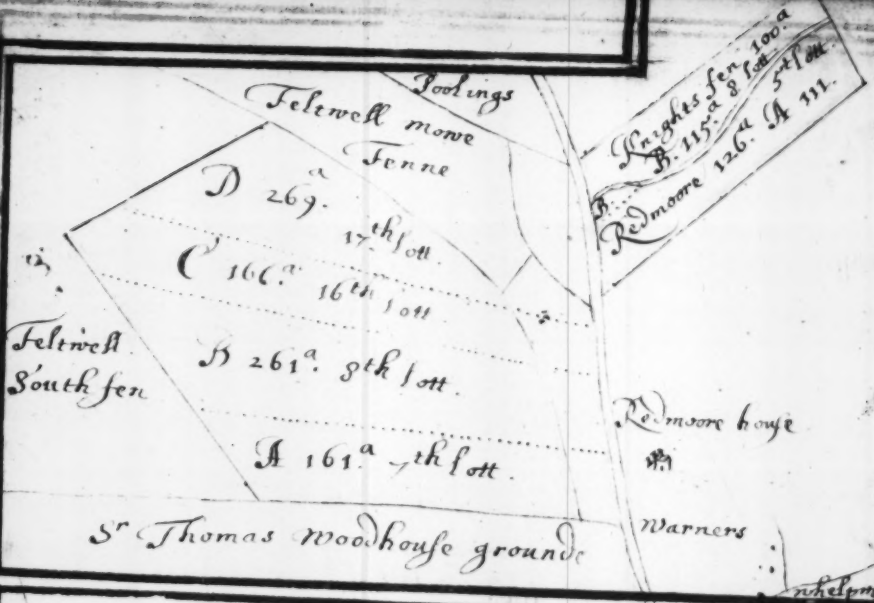 Poolings
Feltwell mowe
Fenne
Knights fen 100.a
B. 115.a 8 lott
5th lott
B.
Redmoore 126.a A 111.
D 269.a
17th lott.
C 166.a 16th lott
Feltwell
South fen
B 261a. 8th lott.
A 161.a 7th lott.
Redmoore house
Sr Thomas Woodhouse grounde
Warners